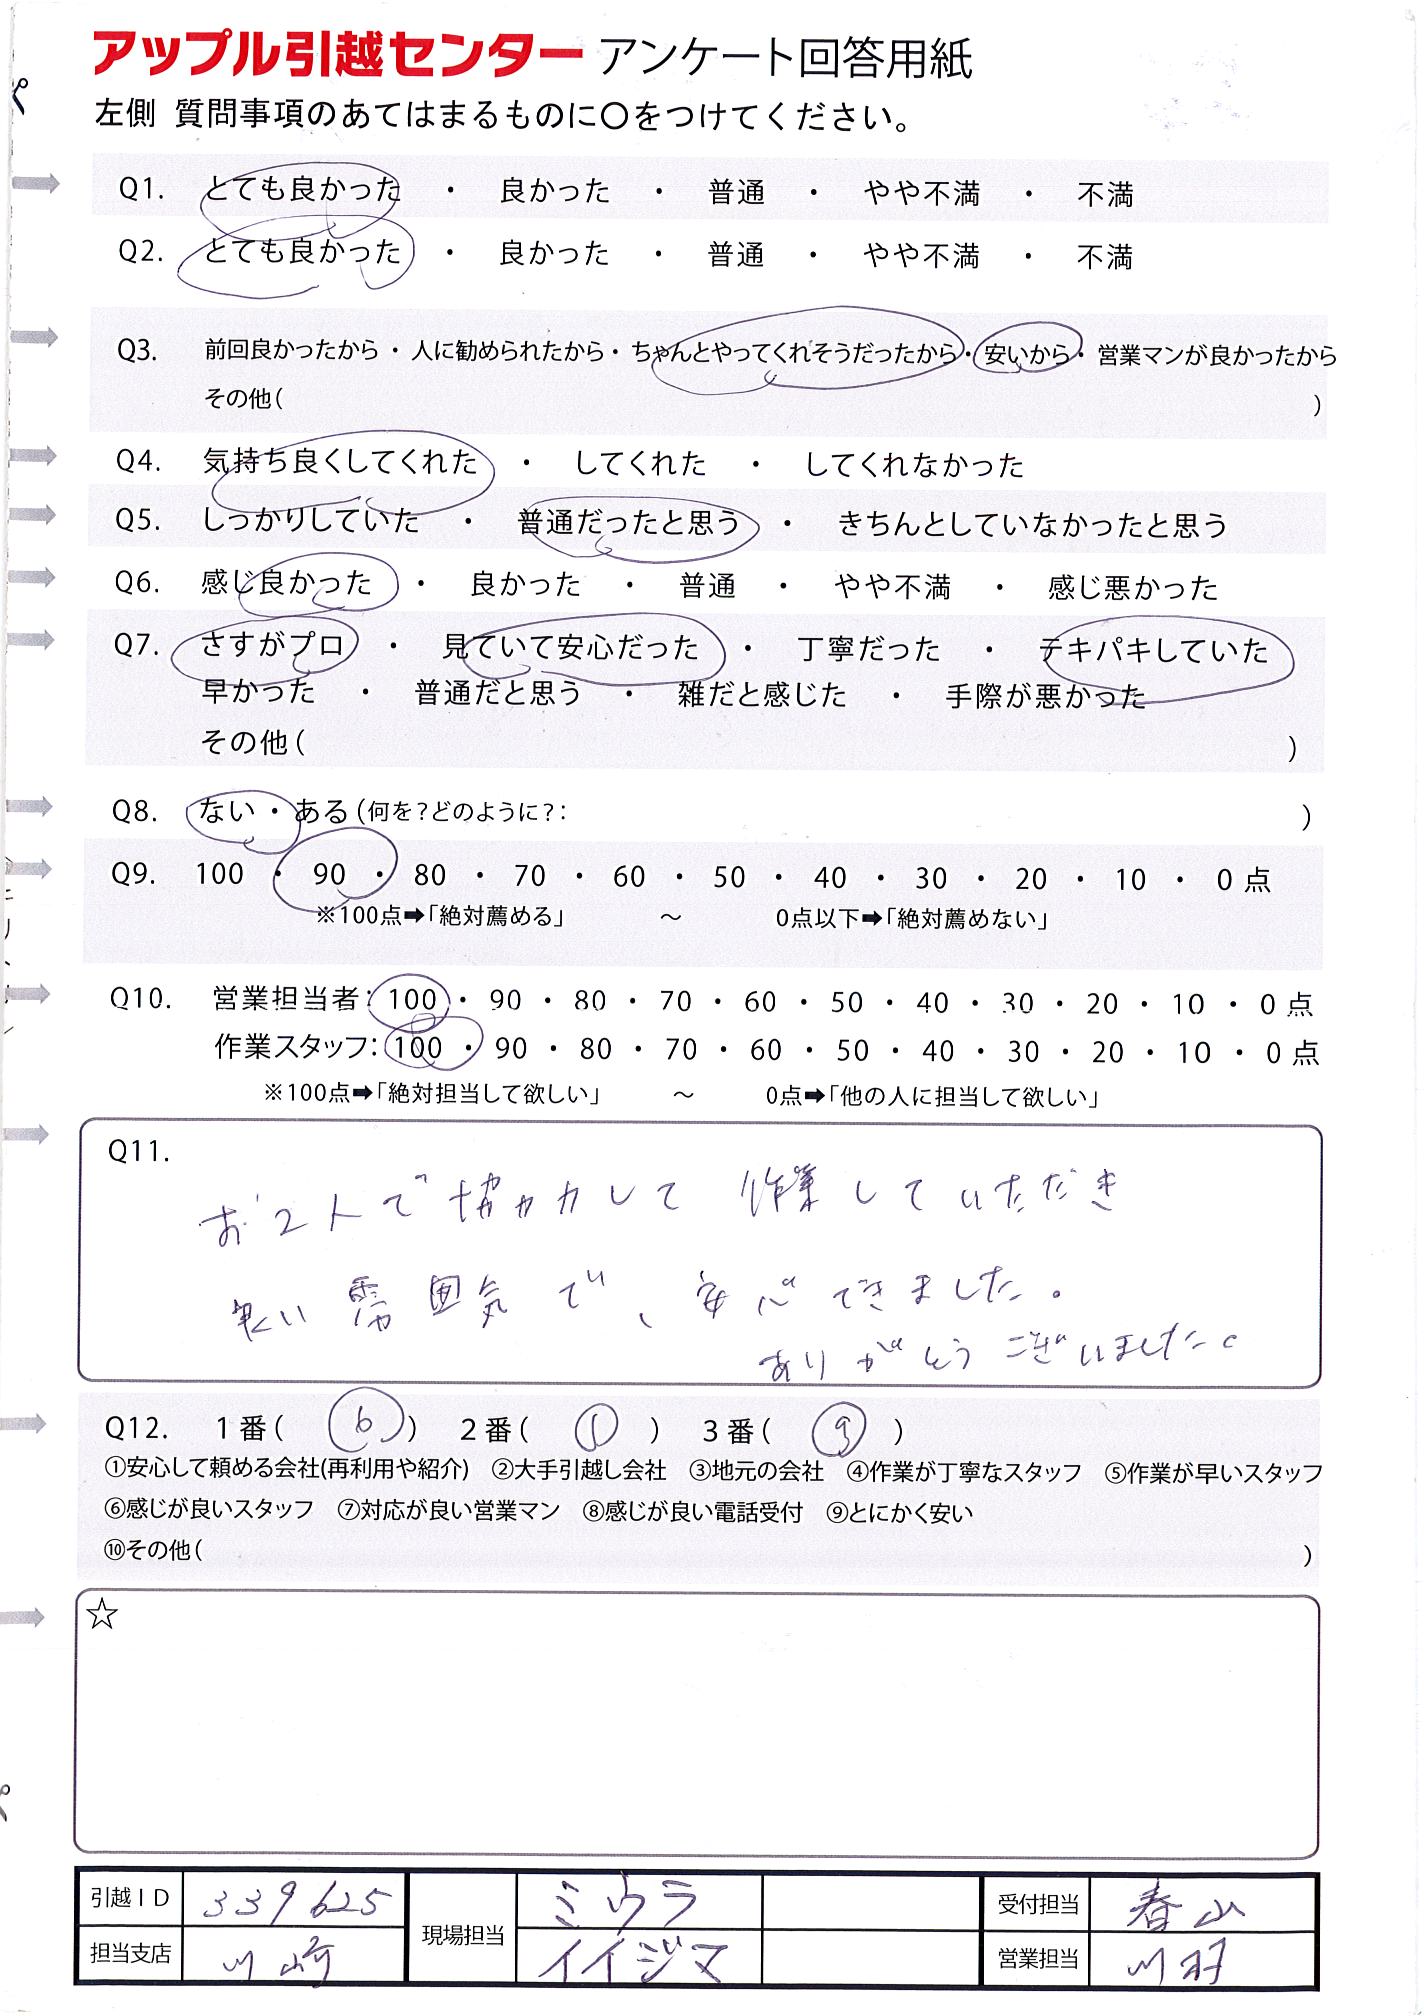 アップル引越センター アンケート回答用紙
左側 質問事項のあてはまるものに○をつけてください。
Q1. とても良かった ・ 良かった ・ 普通 ・ やや不満 ・ 不満
Q2. とても良かった ・ 良かった ・ 普通 ・ やや不満 ・ 不満
Q3. 前回良かったから ・ 人に勧められたから ・ ちゃんとやってくれそうだったから ・ 安いから ・ 営業マンが良かったから
その他( )
Q4. 気持ち良くしてくれた ・ してくれた ・ してくれなかった
Q5. しっかりしていた ・ 普通だったと思う ・ きちんとしていなかったと思う
Q6. 感じ良かった ・ 良かった ・ 普通 ・ やや不満 ・ 感じ悪かった
Q7. さすがプロ ・ 見ていて安心だった ・ 丁寧だった ・ テキパキしていた
早かった ・ 普通だと思う ・ 雑だと感じた ・ 手際が悪かった
その他( )
Q8. ない ・ ある (何を?どのように?: )
Q9. 100 ・ 90 ・ 80 ・ 70 ・ 60 ・ 50 ・ 40 ・ 30 ・ 20 ・ 10 ・ 0 点
※100点➡「絶対薦める」 ～ 0点以下➡「絶対薦めない」
Q10. 営業担当者: 100 ・ 90 ・ 80 ・ 70 ・ 60 ・ 50 ・ 40 ・ 30 ・ 20 ・ 10 ・ 0 点
作業スタッフ: 100 ・ 90 ・ 80 ・ 70 ・ 60 ・ 50 ・ 40 ・ 30 ・ 20 ・ 10 ・ 0 点
※100点➡「絶対担当して欲しい」 ～ 0点➡「他の人に担当して欲しい」
Q11.
お2人で協力して 作業していただき
良い雰囲気で、安心できました。
ありがとうございました。
Q12. 1番( ⑥ ) 2番( ① ) 3番( ⑨ )
①安心して頼める会社(再利用や紹介) ②大手引越し会社 ③地元の会社 ④作業が丁寧なスタッフ ⑤作業が早いスタッフ
⑥感じが良いスタッフ ⑦対応が良い営業マン ⑧感じが良い電話受付 ⑨とにかく安い
⑩その他( )
☆
引越ID 339625 現場担当 ミウラ 受付担当 春山
担当支店 川崎 イイジマ 営業担当 川羽